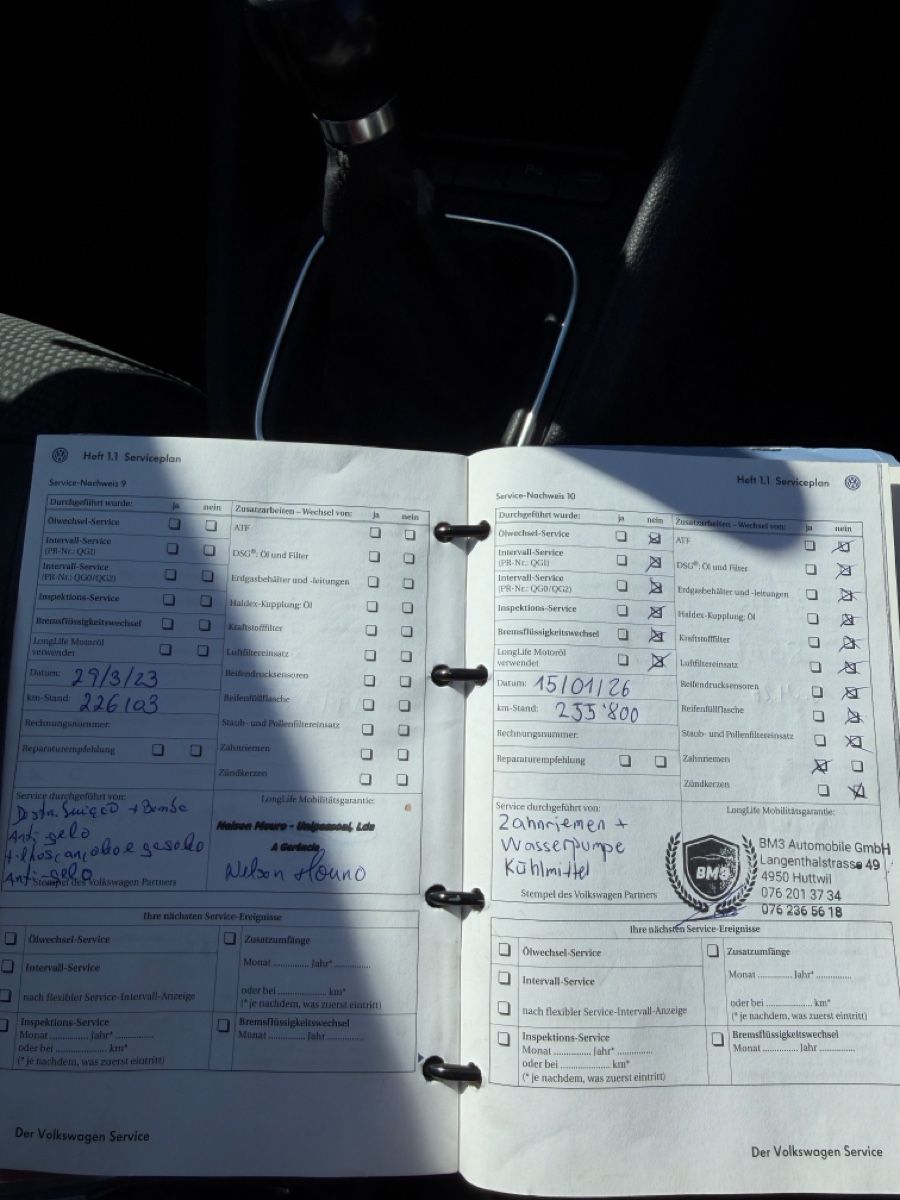 Heft 1.1 Serviceplan
Service-Nachweis 9
Durchgeführt wurde: ja nein
Ölwechsel-Service
Intervall-Service
(PR-Nr.: QG1)
Intervall-Service
(PR-Nr.: QG0/QG2)
Inspektions-Service
Bremsflüssigkeitswechsel
LongLife Motoröl
verwendet
Datum: 29/3/23
km-Stand: 226103
Rechnungsnummer:
Reparaturempfehlung
Zusatzarbeiten – Wechsel von: ja nein
ATF
DSG®: Öl und Filter
Erdgasbehälter und -leitungen
Haldex-Kupplung: Öl
Kraftstofffilter
Luftfiltereinsatz
Reifendrucksensoren
Reifenfüllflasche
Staub- und Pollenfiltereinsatz
Zahnriemen
Zündkerzen
Service durchgeführt von:
+ Bomba
Anti-gelo
Anti-gelo
Stempel des Volkswagen Partners
LongLife Mobilitätsgarantie:
Nelson Mouro - Unipessoal, Lda
A Gerência
Nelson Mouro
Ihre nächsten Service-Ereignisse
Ölwechsel-Service
Intervall-Service
nach flexibler Service-Intervall-Anzeige
Inspektions-Service
Monat .............. Jahr* ..............
oder bei ...................... km*
(* je nachdem, was zuerst eintritt)
Zusatzumfänge
Monat .............. Jahr* ..............
oder bei ...................... km*
(* je nachdem, was zuerst eintritt)
Bremsflüssigkeitswechsel
Monat .............. Jahr ..............
Der Volkswagen Service
Heft 1.1 Serviceplan
Service-Nachweis 10
Durchgeführt wurde: ja nein
Ölwechsel-Service
Intervall-Service
(PR-Nr.: QG1)
Intervall-Service
(PR-Nr.: QG0/QG2)
Inspektions-Service
Bremsflüssigkeitswechsel
LongLife Motoröl
verwendet
Datum: 15/01/26
km-Stand: 255'800
Rechnungsnummer:
Reparaturempfehlung
Zusatzarbeiten – Wechsel von: ja nein
ATF
DSG®: Öl und Filter
Erdgasbehälter und -leitungen
Haldex-Kupplung: Öl
Kraftstofffilter
Luftfiltereinsatz
Reifendrucksensoren
Reifenfüllflasche
Staub- und Pollenfiltereinsatz
Zahnriemen
Zündkerzen
Service durchgeführt von:
Zahnriemen +
Wasserpumpe
Kühlmittel
Stempel des Volkswagen Partners
LongLife Mobilitätsgarantie:
BM3
BM3 Automobile GmbH
Langenthalstrasse 49
4950 Huttwil
076 201 37 34
076 236 56 18
Ihre nächsten Service-Ereignisse
Ölwechsel-Service
Intervall-Service
nach flexibler Service-Intervall-Anzeige
Inspektions-Service
Monat .............. Jahr* ..............
oder bei ...................... km*
(* je nachdem, was zuerst eintritt)
Zusatzumfänge
Monat .............. Jahr* ..............
oder bei ...................... km*
(* je nachdem, was zuerst eintritt)
Bremsflüssigkeitswechsel
Monat .............. Jahr ..............
Der Volkswagen Service